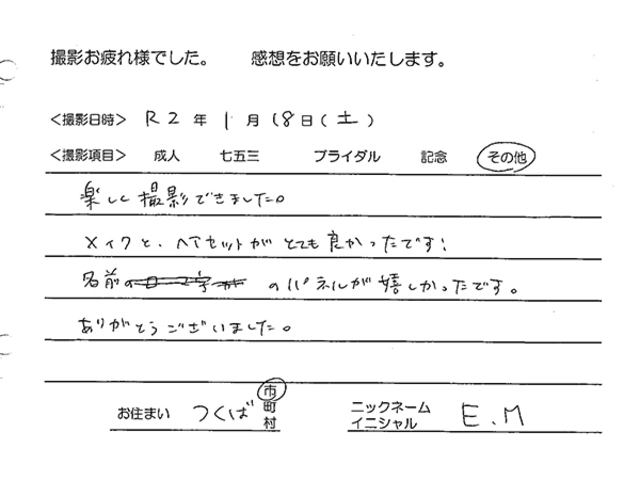 撮影お疲れ様でした。 感想をお願いいたします。
<撮影日時> R2年 1月 18日(土)
<撮影項目> 成人 七五三 ブライダル 記念 その他
楽しく撮影できました。
メイクと、ヘアセットがとても良かったです!
名前のパネルが嬉しかったです。
ありがとうございました。
お住まい つくば 市町村 ニックネーム イニシャル E.M